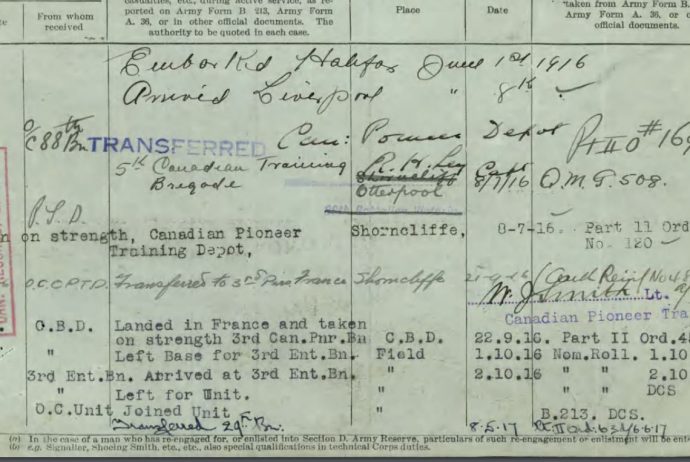 casualties, etc., during active service, as re-
ported on Army Form B. 213, Army Form
A. 36, or in other official documents. The
authority to be quoted in each case.
From whom
received
Place
Date
taken from Army Form B.
Army Form A. 36, or
official documents.
Embarked Halifax June 1st 1916
Arrived Liverpool " 8th
O/C 88th Bn. TRANSFERRED Can: Pioneer Depot Pt II O #169
5th Canadian Training
Brigade
Shorncliffe
Otterpool
8/7/16 Q.M.G. 508.
P.T.D.
on strength, Canadian Pioneer Shorncliffe, 8-7-16. Part 11 Ord
Training Depot, No. 120
O.C.C.P.T.D. Transferred to 3rd Pnrs. France Shorncliffe 21-9-16
W. J. Smith Lt.
Canadian Pioneer Tra
C.B.D. Landed in France and taken
on strength 3rd Can.Pnr.Bn C.B.D. 22.9.16. Part II Ord.4
" Left Base for 3rd Ent.Bn. Field 1.10.16 Nom.Roll. 1.10
3rd Ent.Bn. Arrived at 3rd Ent.Bn. " 2.10.16 " " 2.10
" Left for Unit. " " " DCS
O.C.Unit Joined Unit " B.213. DCS.
Transferred 29th Bn. 8.5.17 Pt. II Ord. 63d/6-6-17
(a) In the case of a man who has re-engaged for, or enlisted into Section D. Army Reserve, particulars of such re-engagement or enlistment will be ent
(b) e.g. Signaller, Shoeing Smith, etc., etc., also special qualifications in technical Corps duties.